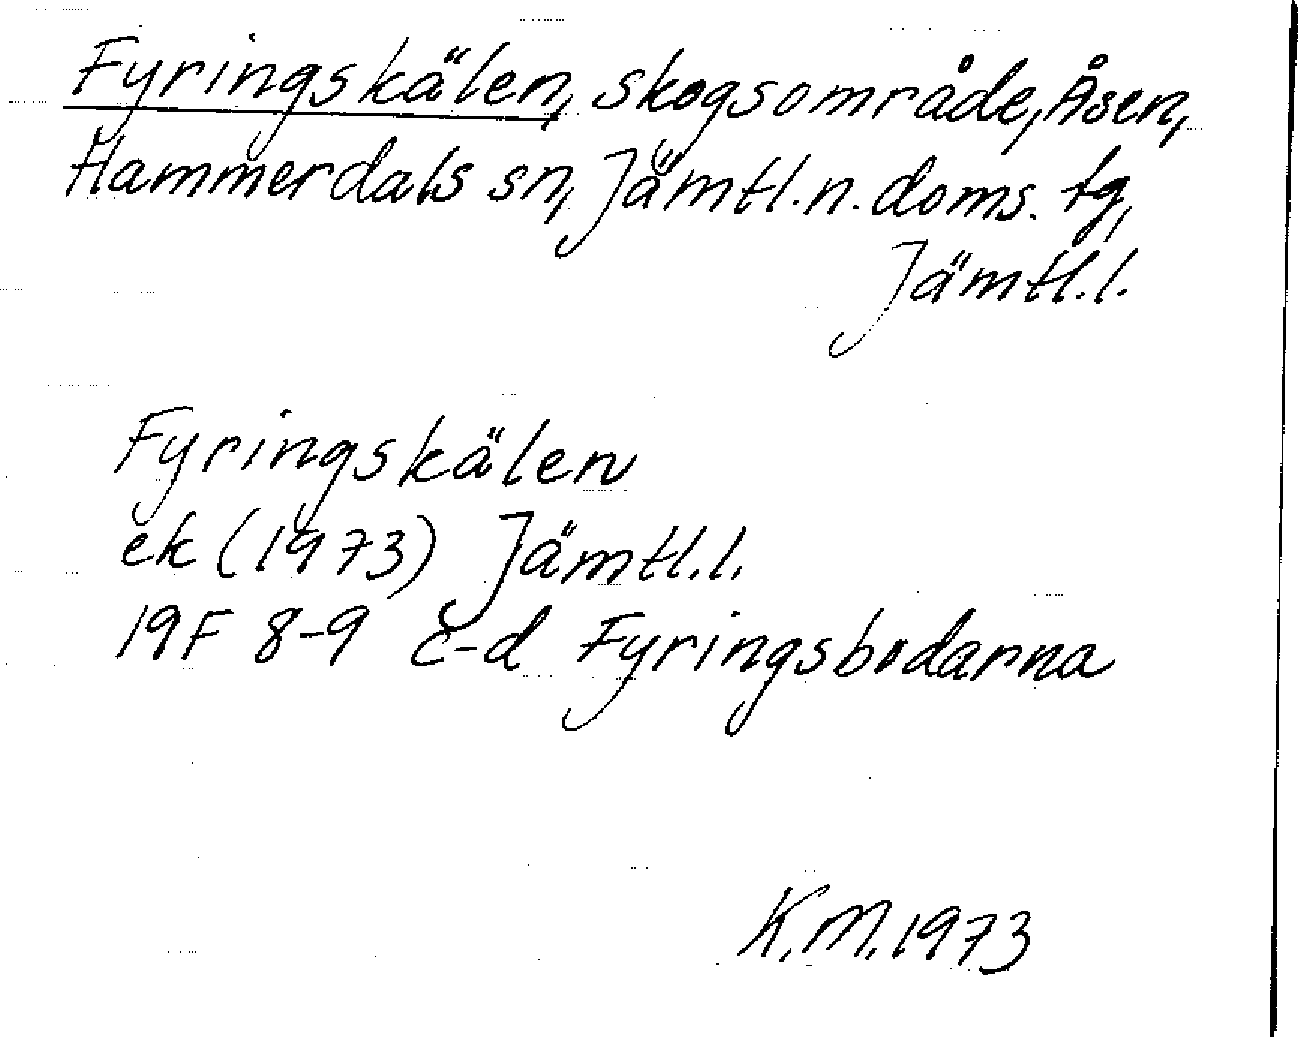 Fyringskälen, skogsområde, Åsen,
Hammerdals sn, Jämtl.n.doms. tg,
Jämtl.l.
Fyringskälen
ek (1973) Jämtl.l.
19F 8-9 c-d Fyringsbodarna
K.M.1973